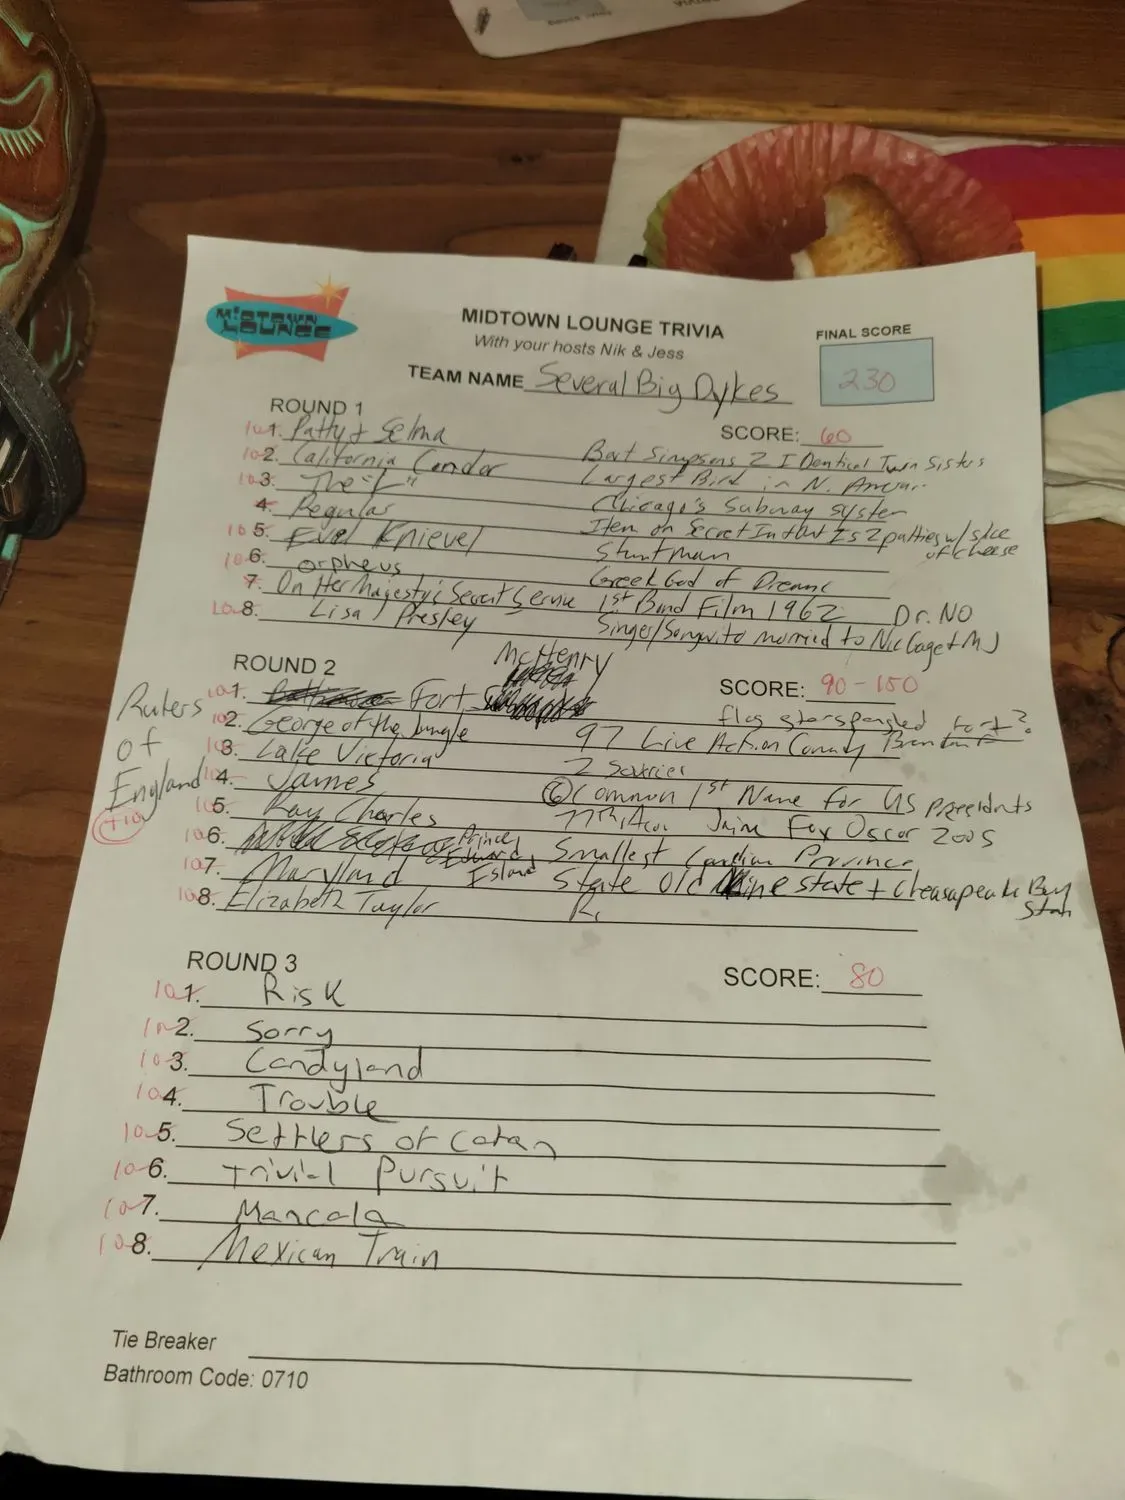 MIDTOWN LOUNGE
MIDTOWN LOUNGE TRIVIA
With your hosts Nik & Jess
FINAL SCORE
230
TEAM NAME Several Big Dykes
ROUND 1
SCORE: 60
10 1. Patty & Selma
Bart Simpsons 2 IDentical Twin Sisters
10 2. California Condor
Largest Bird in N.
10 3. The "L"
Chicago's Subway system
4. Regular
Item on Secret Is 2 patties w/ slice of cheese
10 5. Evel Knievel
Stuntman
10 6. Orpheus
Greek God of
7. On Her Majesty's Secret Service
1st Bond Film 1962 Dr. NO
10 8. Lisa Presley
Singer/ married to Nic Cage + MJ
ROUND 2
SCORE: 90-150
10 1. Fort McHenry
flag starspangled fort?
10 2. George of the Jungle
97 Live Action Comedy
10 3. Lake Victoria
2
10 4. James
6 Common 1st Name for US Presidents
10 5. Ray Charles
Jaime Fox Oscar 2005
10 6. Prince Edward Island
Smallest Province
10 7. Maryland
State Old line state + Cheasapeake Bay
10 8. Elizabeth Taylor
R
Rulers of England
+10
ROUND 3
SCORE: 80
10 1. Risk
10 2. Sorry
10 3. Candyland
10 4. Trouble
10 5. Settlers of Catan
10 6. Trivial Pursuit
10 7. Mancala
10 8. Mexican Train
Tie Breaker
Bathroom Code: 0710